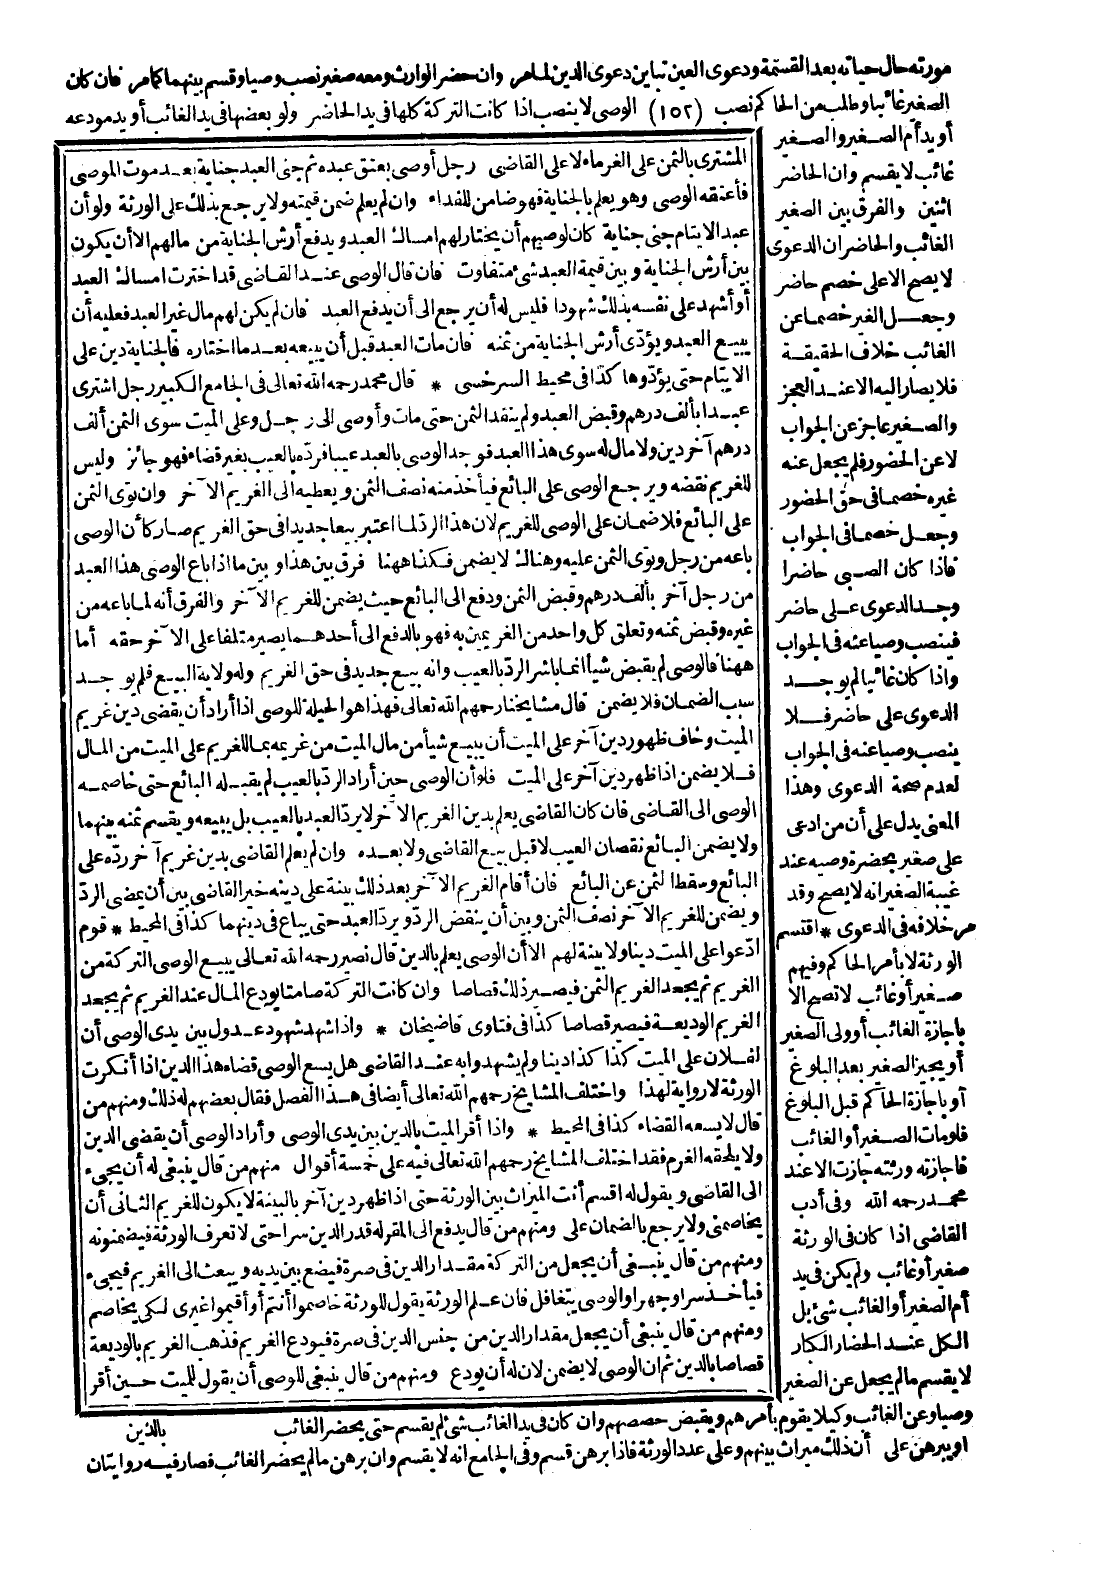 مورته حال حياته بعد القسمة ودعوى العين تباين دعوى الدين لما مر وان حضر الوارث ومعه صغير نصب وصيا وقسم بينهما كما مر فان كان
الصغير غائبا وطلب من الحاكم نصب (١٥٢) الوصى لا ينصب اذا كانت التركة كلها فى يد الحاضر ولو بعضها فى يد الغائب أو يد مودعه
أو يد أم الصغير والصغير
غائب لا يقسم وان الحاضر
اثنين والفرق بين الصغير
الغائب والحاضر ان الدعوى
لا يصح الا على خصم حاضر
وجعل الغير خصما عن
الغائب خلاف الحقيقة
فلا يصار اليه الا عند العجز
والصغير عاجز عن الجواب
لا عن الحضور فلم يجعل عنه
غيره خصما فى حق الحضور
وجعل خصما فى الجواب
فاذا كان الصبى حاضرا
وجد الدعوى على حاضر
فينصب وصيا عنه فى الجواب
واذا كان غائبا لم يوجد
الدعوى على حاضر فلا
ينصب وصيا عنه فى الجواب
لعدم صحة الدعوى وهذا
المعنى يدل على أن من ادعى
على صغير بحضرة وصيه عند
غيبة الصغير انه لا يصح وقد
مر خلافه فى الدعوى * اقتسم
الورثة لا بأمر الحاكم وفيهم
صغير أو غائب لا تصح الا
باجازة الغائب أو ولى الصغير
أو يجيز الصغير بعد البلوغ
أو باجازة الحاكم قبل البلوغ
فلو مات الصغير أو الغائب
فاجازته ورثته جازت الا عند
محمد رحمه الله وفى أدب
القاضى اذا كان فى الورثة
صغير أو غائب ولم يكن فى يد
أم الصغير أو الغائب شئ بل
الكل عند الحضار الكبار
لا يقسم ما لم يجعل عن الصغير
وصيا وعن الغائب وكيلا يقوم بأمرهم ويقبض حصصهم وان كان فى يد الغائب شئ لم يقسم حتى يحضر الغائب
او يبرهن على أن ذلك ميراث بينهم وعلى عدد الورثة فاذا برهن قسم وفى الجامع انه لا يقسم وان برهن ما لم يحضر الغائب فصار فيه روايتان
المشترى بالثمن على الغرماء لا على القاضى رجل أوصى بعتق عبده ثم جنى العبد جناية بعد موت الموصى
فأعتقه الوصى وهو يعلم بالجناية فهو ضامن للفداء وان لم يعلم ضمن قيمته ولا يرجع بذلك على الورثة ولو أن
عبد الايتام جنى جناية كان لوصيهم أن يختار لهم امساك العبد ويدفع أرش الجناية من مالهم الا أن يكون
بين أرش الجناية وبين قيمة العبد شئ متفاوت فان قال الوصى عند القاضى قد اخترت امساك العبد
أو أشهد على نفسه بذلك شهودا فليس له أن يرجع الى أن يدفع العبد فان لم يكن لهم مال غير العبد فعليه أن
يبيع العبد ويؤدى أرش الجناية من ثمنه فان مات العبد قبل أن يبيعه بعد ما اختاره فالجناية دين على
الايتام حتى يؤدوها كذا فى محيط السرخسى * قال محمد رحمه الله تعالى فى الجامع الكبير رجل اشترى
عبدا بألف درهم وقبض العبد ولم ينقد الثمن حتى مات وأوصى الى رجل وعلى الميت سوى الثمن ألف
درهم آخر دين ولا مال له سوى هذا العبد فوجد الوصى بالعبد عيبا فرده بالعيب بغير قضاء فهو جائز وليس
للغريم نقضه ويرجع الوصى على البائع فيأخذ منه نصف الثمن ويعطيه الى الغريم الآخر وان توى الثمن
على البائع فلا ضمان على الوصى للغريم لان هذا الرد لما اعتبر بيعا جديدا فى حق الغريم صار كأن الوصى
باعه من رجل وتوى الثمن عليه وهناك لا يضمن فكذا ههنا فرق بين هذا وبين ما اذا باع الوصى هذا العبد
من رجل آخر بألف درهم وقبض الثمن ودفع الى البائع حيث يضمن للغريم الآخر والفرق أنه لما باعه من
غيره وقبض ثمنه وتعلق كل واحد من الغريمين به فهو بالدفع الى أحدهما يصير متلفا على الآخر حقه أما
ههنا فالوصى لم يقبض شيأ انما باشر الرد بالعيب وانه بيع جديد فى حق الغريم وله ولاية البيع فلم يوجد
سبب الضمان فلا يضمن قال مشايخنا رحمهم الله تعالى فهذا هو الحيلة للوصى اذا أراد أن يقضى دين غريم
الميت وخاف ظهور دين آخر على الميت أن يبيع شيأ من مال الميت من غريمه بما للغريم على الميت من المال
فلا يضمن اذا ظهر دين آخر على الميت فلو أن الوصى حين أراد الرد بالعيب لم يقبله البائع حتى خاصمه
الوصى الى القاضى فان كان القاضى يعلم بدين الغريم الآخر لا يرد العبد بالعيب بل يبيعه ويقسم ثمنه بينهما
ولا يضمن البائع نقصان العيب لا قبل بيع القاضى ولا بعده وان لم يعلم القاضى بدين غريم آخر رده على
البائع وسقط الثمن عن البائع فان أقام الغريم الآخر بعد ذلك بينة على دينه خير القاضى بين أن يمضى الرد
ويضمن للغريم الآخر نصف الثمن وبين أن ينقض الرد ويرد العبد حتى يباع فى دينهما كذا فى المحيط * قوم
ادعوا على الميت دينا ولا بينة لهم الا أن الوصى يعلم بالدين قال نصير رحمه الله تعالى يبيع الوصى التركة من
الغريم ثم يجحد الغريم الثمن فيصير ذلك قصاصا وان كانت التركة صامتا يودع المال عند الغريم ثم يجحد
الغريم الوديعة فيصير قصاصا كذا فى فتاوى قاضيخان * واذا شهد شهود عدول بين يدى الوصى أن
لفلان على الميت كذا كذا دينا ولم يشهدوا به عند القاضى هل يسع الوصى قضاء هذا الدين اذا أنكرت
الورثة لا رواية لهذا واختلف المشايخ رحمهم الله تعالى أيضا فى هذا الفصل فقال بعضهم له ذلك ومنهم من
قال لا يسعه القضاء كذا فى المحيط * واذا أقر الميت بالدين بين يدى الوصى وأراد الوصى أن يقضى الدين
ولا يلحقه الغرم فقد اختلف المشايخ رحمهم الله تعالى فيه على خمسة أقوال منهم من قال ينبغى له أن يجىء
الى القاضى ويقول له اقسم أنت الميراث بين الورثة حتى اذا ظهر دين آخر بالبينة لا يكون للغريم الثانى أن
يخاصمنى ولا يرجع بالضمان على ومنهم من قال يدفع الى المقر له قدر الدين سرا حتى لا تعرف الورثة فيضمنونه
ومنهم من قال ينبغى أن يجعل من التركة مقدار الدين فى صرة فيضع بين يديه ويبعث الى الغريم فيجىء
فيأخذ سرا وجهرا والوصى يتغافل فان علم الورثة يقول للورثة خاصموا أنتم أو أقيموا غيرى لكى يخاصم
ومنهم من قال ينبغى أن يجعل مقدار الدين من جنس الدين فى صرة فيودع الغريم فذهب الغريم بالوديعة
قصاصا بالدين ثم ان الوصى لا يضمن لان له أن يودع ومنهم من قال ينبغى للوصى أن يقول للميت حين أقر
بالدين